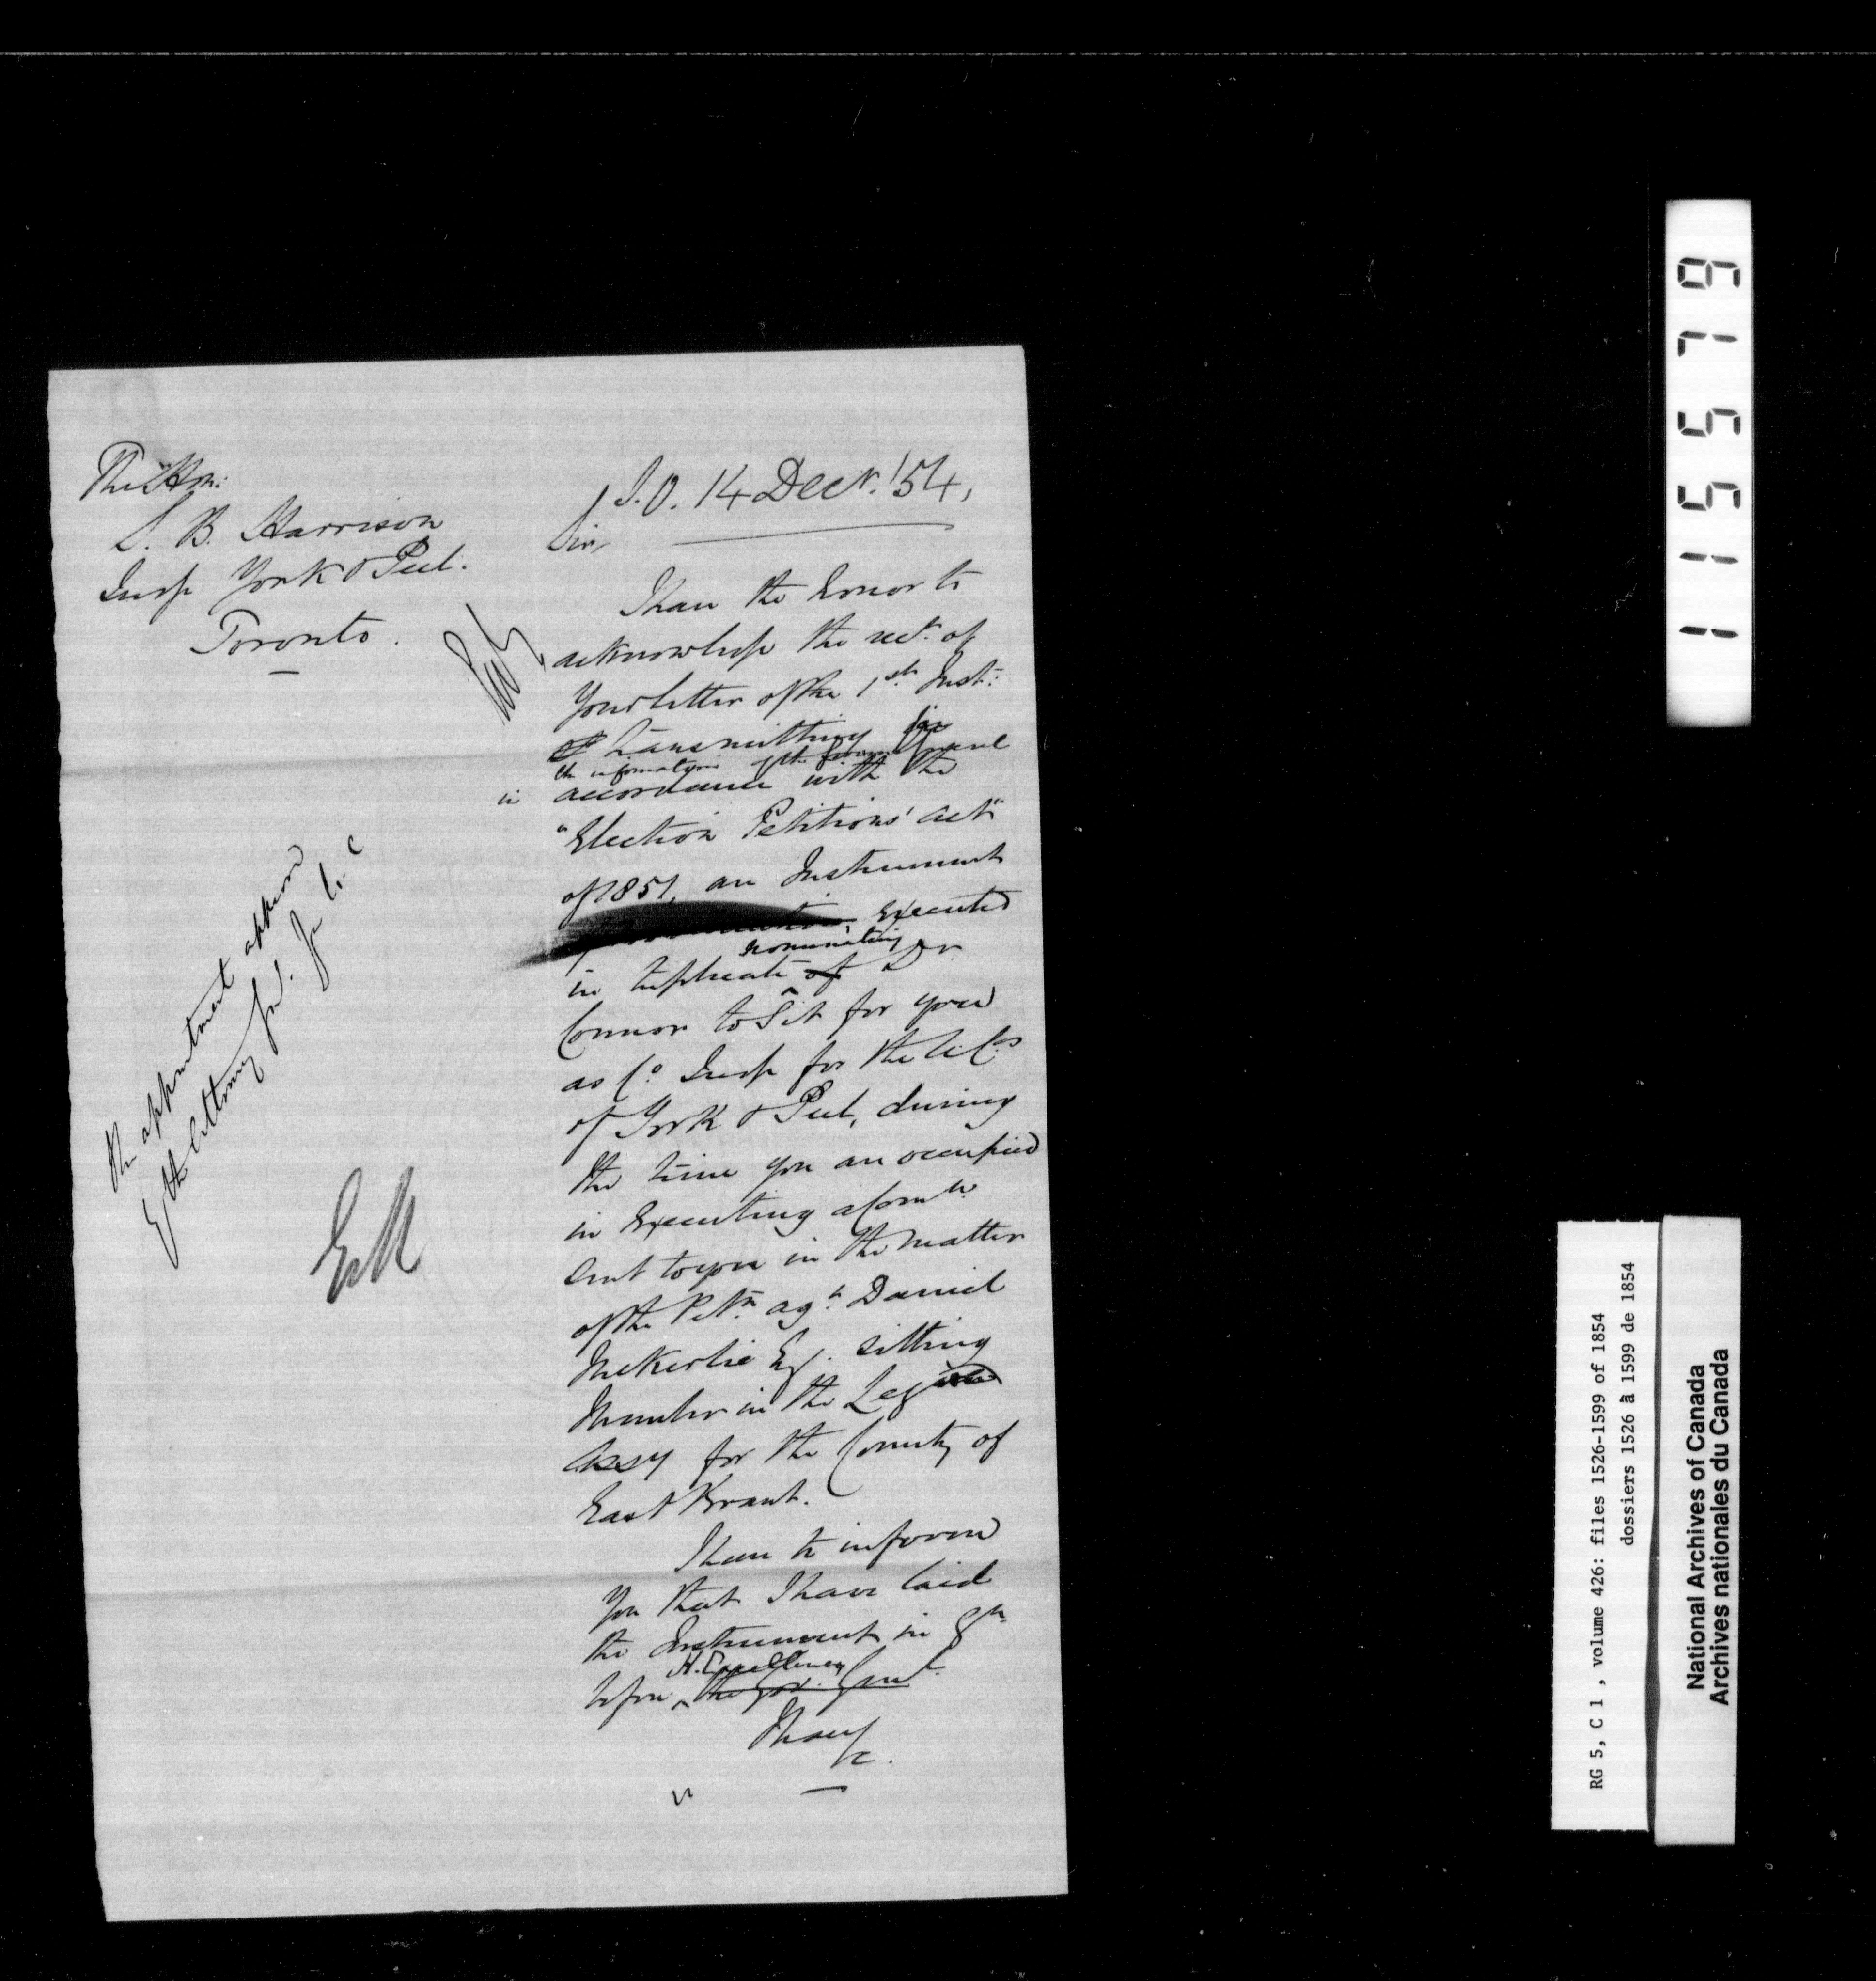 The Hon:
S. B. Harrison
Judge York & Peel.
Toronto.
S.O. 14 Decr. '54,
Sir,
I have the honor to
acknowledge the rect. of
your letter of the 1st Inst:
transmitting for
the information of the Govr Genl
in accordance with the
"Election Petitions' Act"
of 1851, an Instrument
executed
nominating
in triplicate of Dr.
Connor to sit for you
as Co. Judge for the U. Cos
of York & Peel, during
the time you are occupied
in executing a Comn
sent to you in the matter
of the Petn. agt. Daniel
McKerlie Esq. sitting
Member in the Leg
Assy for the County of
East Brant.
I have to inform
you that I have laid
the Instrument in qn
H. Excellency
before the Gov. Genl.
I have
&c.
the appointment approved
by the Attorney Genl. for U. C
EAM
1115579
RG 5, C 1 , volume 426: files 1526-1599 of 1854
dossiers 1526 à 1599 de 1854
National Archives of Canada
Archives nationales du Canada